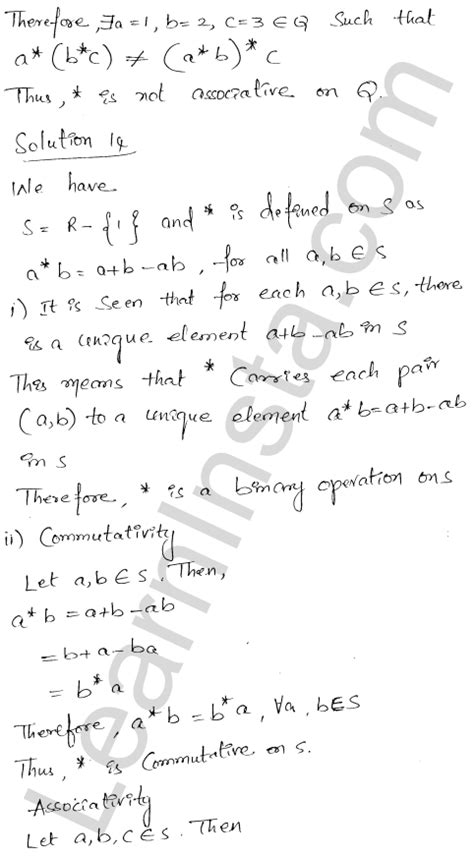 Therefore, ∃a = 1, b = 2, c = 3 ∈ Q Such that
a*(b*c) ≠ (a*b)*c
Thus, * is not associative on Q.
Solution 14
We have
S = R - {1} and * is defined on S as
a*b = a+b-ab, for all a,b ∈ S
i) It is seen that for each a,b ∈ S, there
is a unique element a+b-ab in S
This means that * Carries each pair
(a,b) to a unique element a*b = a+b-ab
in S
Therefore, * is a binary operation on S
ii) Commutativity
Let a,b ∈ S. Then,
a*b = a+b-ab
= b+a-ba
= b*a
Therefore, a*b = b*a, ∀a, b∈S
Thus, * is Commutative on S.
Associativity
Let a,b,c ∈ S. Then
LearnInsta.com